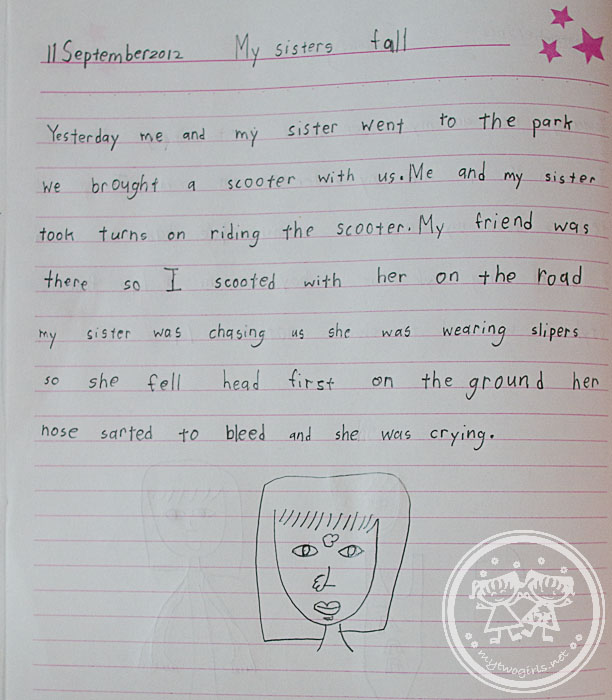 11 September 2012 My sisters fall
Yesterday me and my sister went to the park
we brought a scooter with us. Me and my sister
took turns on riding the scooter. My friend was
there so I scooted with her on the road
my sister was chasing us she was wearing slipers
so she fell head first on the ground her
nose sarted to bleed and she was crying.
mytwogirls.net